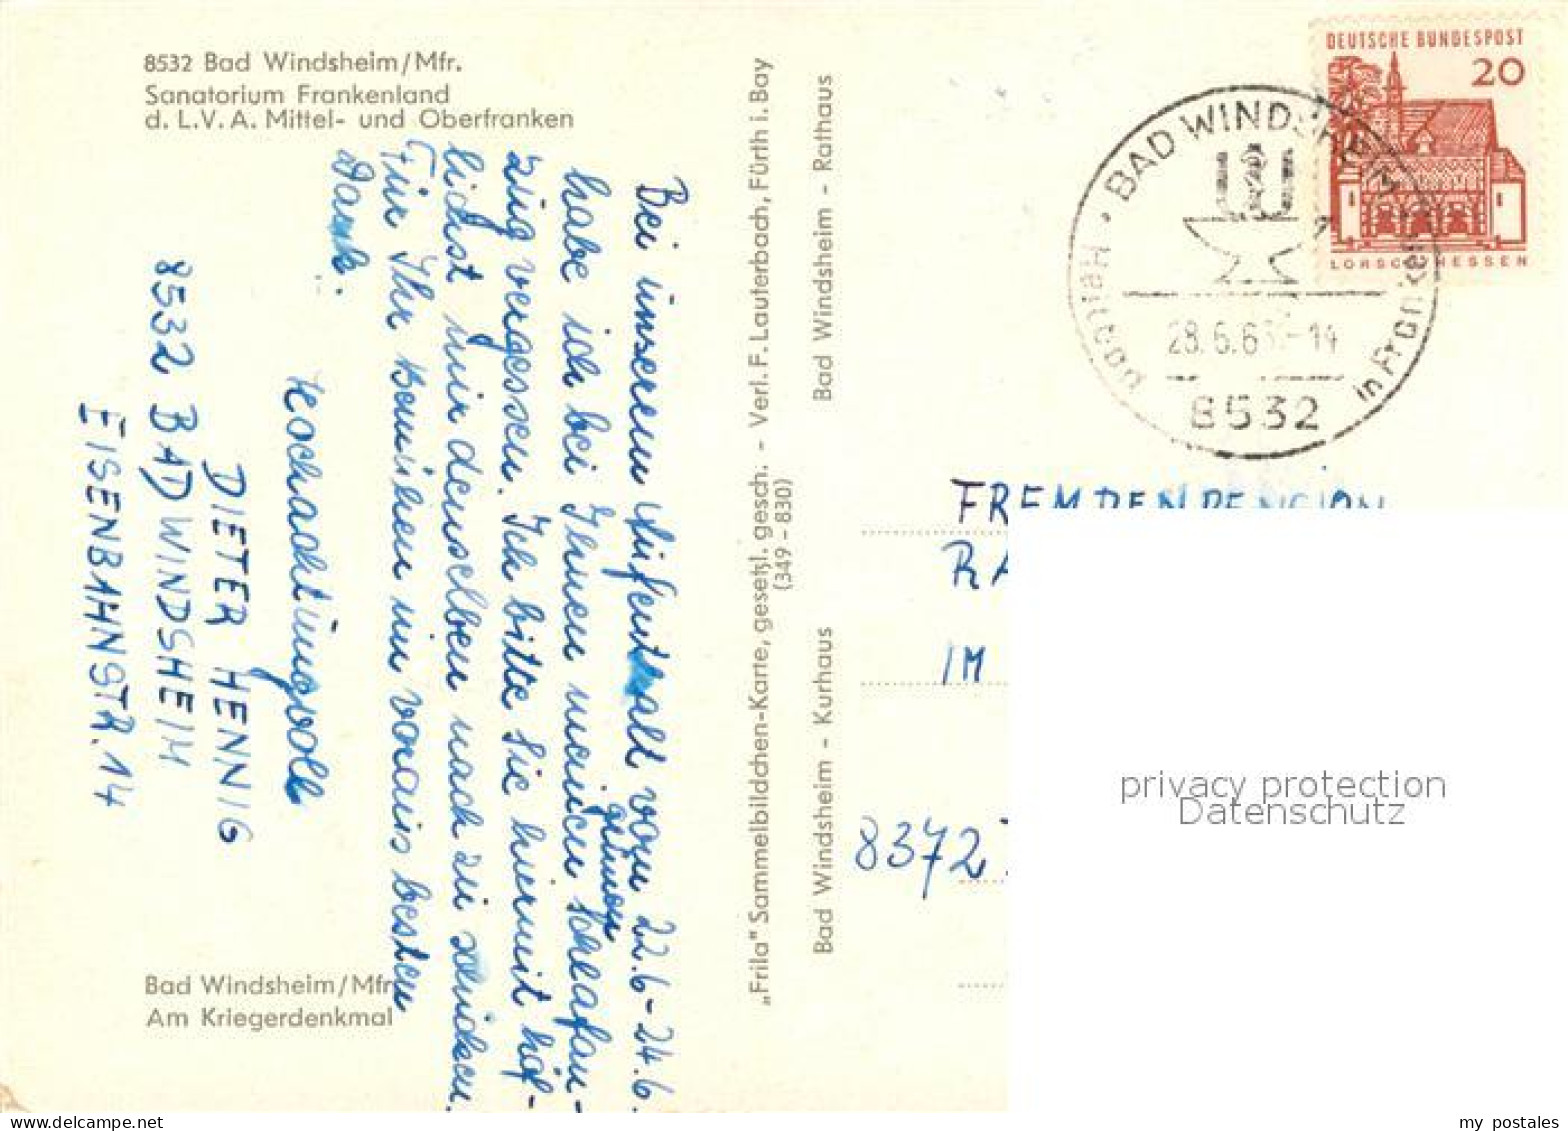 8532 Bad Windsheim/Mfr.
Sanatorium Frankenland
d. L.V.A. Mittel- und Oberfranken
Bei unserem Aufenthalt vom 22.6 - 24.6.
habe ich bei Ihnen meinen Schlafan-
grünen
zug vergessen. Ich bitte Sie hiermit höf-
lichst mir denselben nach zu schicken.
Für Ihr Bemühen im voraus besten
Dank.
Hochachtungvoll
DIETER HENNIG
8532 BAD WINDSHEIM
EISENBAHNSTR. 14
Bad Windsheim/Mfr.
Am Kriegerdenkmal
„Frila" Sammelbildchen-Karte, gesetzl. gesch. - Verl. F. Lauterbach, Fürth i. Bay
(349 - 830)
Bad Windsheim - Rathaus
Bad Windsheim - Kurhaus
DEUTSCHE BUNDESPOST
20
LORSCH HESSEN
BAD WINDSHEIM
Heilbad in Franken
28.6.6 -14
8532
FREMDENPENSION
RA
IM
8372
privacy protection
Datenschutz
my postales